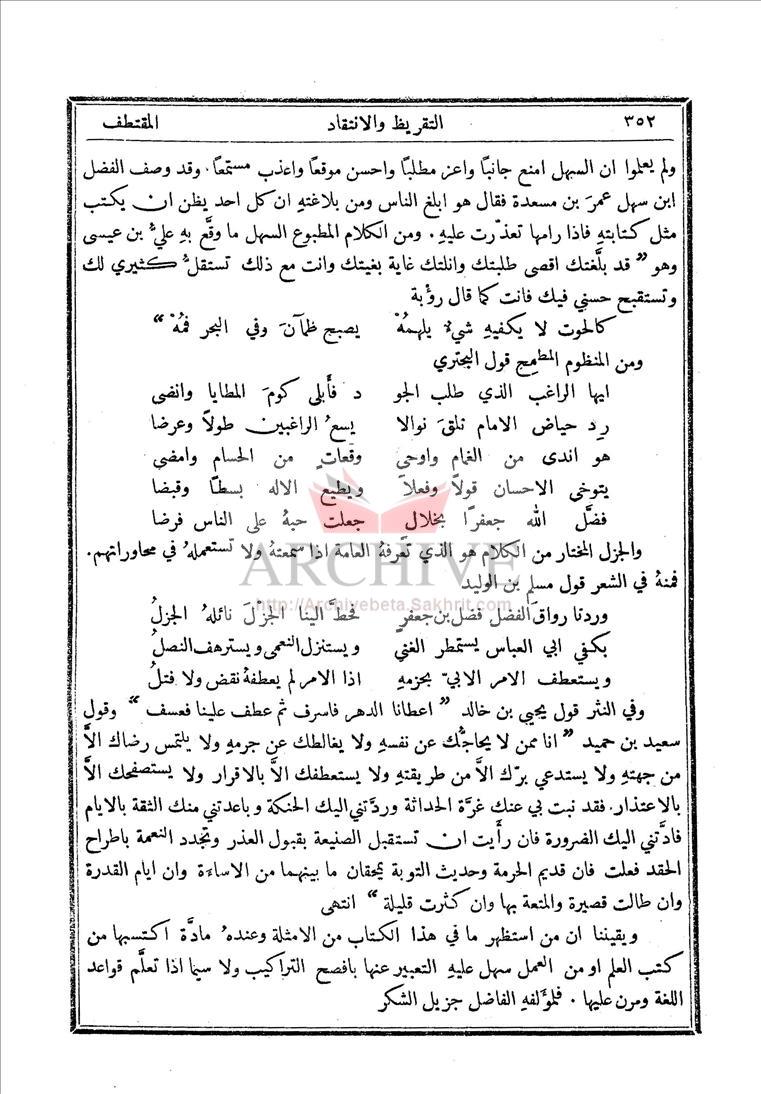 ٣٥٢ التقريظ والانتقاد المقتطف
ولم يعلموا ان السهل امنع جانبًا واعز مطلبًا واحسن موقعًا واعذب مستمعًا . وقد وصف الفضل
ابن سهل عمرَ بن مسعدة فقال هو ابلغ الناس ومن بلاغتهِ ان كل احد يظن ان يكتب
مثل كتابتهِ فاذا رامها تعذّرت عليهِ . ومن الكلام المطبوع السهل ما وقَّع بهِ عليُّ بن عيسى
وهو " قد بلَّغتك اقصى طلبتك وانلتك غاية بغيتك وانت مع ذلك تستقلُّ كثيري لك
وتستقبح حسني فيك فانت كما قال رؤبة
كالحوت لا يكفيهِ شيءٌ يلهمُهْ يصبح ظمآنَ وفي البحر فمُهْ "
ومن المنظوم المطمِع قول البحتري
ايها الراغب الذي طلب الجو د فأَبلى كومَ المطايا وانضى
رِد حياض الامام تلقَ نوالا يسعُ الراغبين طولاً وعرضا
هو اندى من الغمام واوحى وقعاتٍ من الحسام وامضى
يتوخى الاحسان قولاً وفعلاً ويطيع الاله بسطًا وقبضا
فضَّل الله جعفرًا بخلال جعلت حبهُ على الناس فرضا
والجزل المختار من الكلام هو الذي تعرفهُ العامة اذا سمعتهُ ولا تستعملهُ في محاوراتهم .
فمنهُ في الشعر قول مسلم بن الوليد
وردنا رواق الفضل فضل بن جعفرٍ فحطَّ الينا الجزلَ نائلهُ الجزلُ
بكفي ابي العباس يستمطر الغنى ويستنزل النعمى ويسترهف النصلُ
ويستعطف الامر الابيّ بحزمهِ اذا الامر لم يعطفهُ نقض ولا فتلُ
وفي النثر قول يحيى بن خالد " اعطانا الدهر فاسرف ثم عطف علينا فعسف " وقول
سعيد بن حميد " انا ممن لا يحاجُّك عن نفسهِ ولا يغالطك عن جرمهِ ولا يلتمس رضاك الاَّ
من جهتهِ ولا يستدعي برّك الاَّ من طريقتهِ ولا يستعطفك الاَّ بالاقرار ولا يستصفحك الاَّ
بالاعتذار . فقد نبت بي عنك غرَّة الحداثة وردَّتني اليك الحنكة وباعدتني منك الثقة بالايام
فادَّتني اليك الضرورة فان رأَيت ان تستقبل الصنيعة بقبول العذر وتجدد النعمة باطراح
الحقد فعلت فان قديم الحرمة وحديث التوبة يمحقان ما بينهما من الاساءَة وان ايام القدرة
وان طالت قصيرة والمتعة بها وان كثرت قليلة " انتهى
ويقيننا ان من استظهر ما في هذا الكتاب من الامثلة وعندهُ مادَّة اكتسبها من
كتب العلم او من العمل سهل عليهِ التعبير عنها بافصح التراكيب ولا سيما اذا تعلَّم قواعد
اللغة ومرن عليها . فلمؤَلفهِ الفاضل جزيل الشكر
ARCHIVE
http://Archivebeta.Sakhrit.com